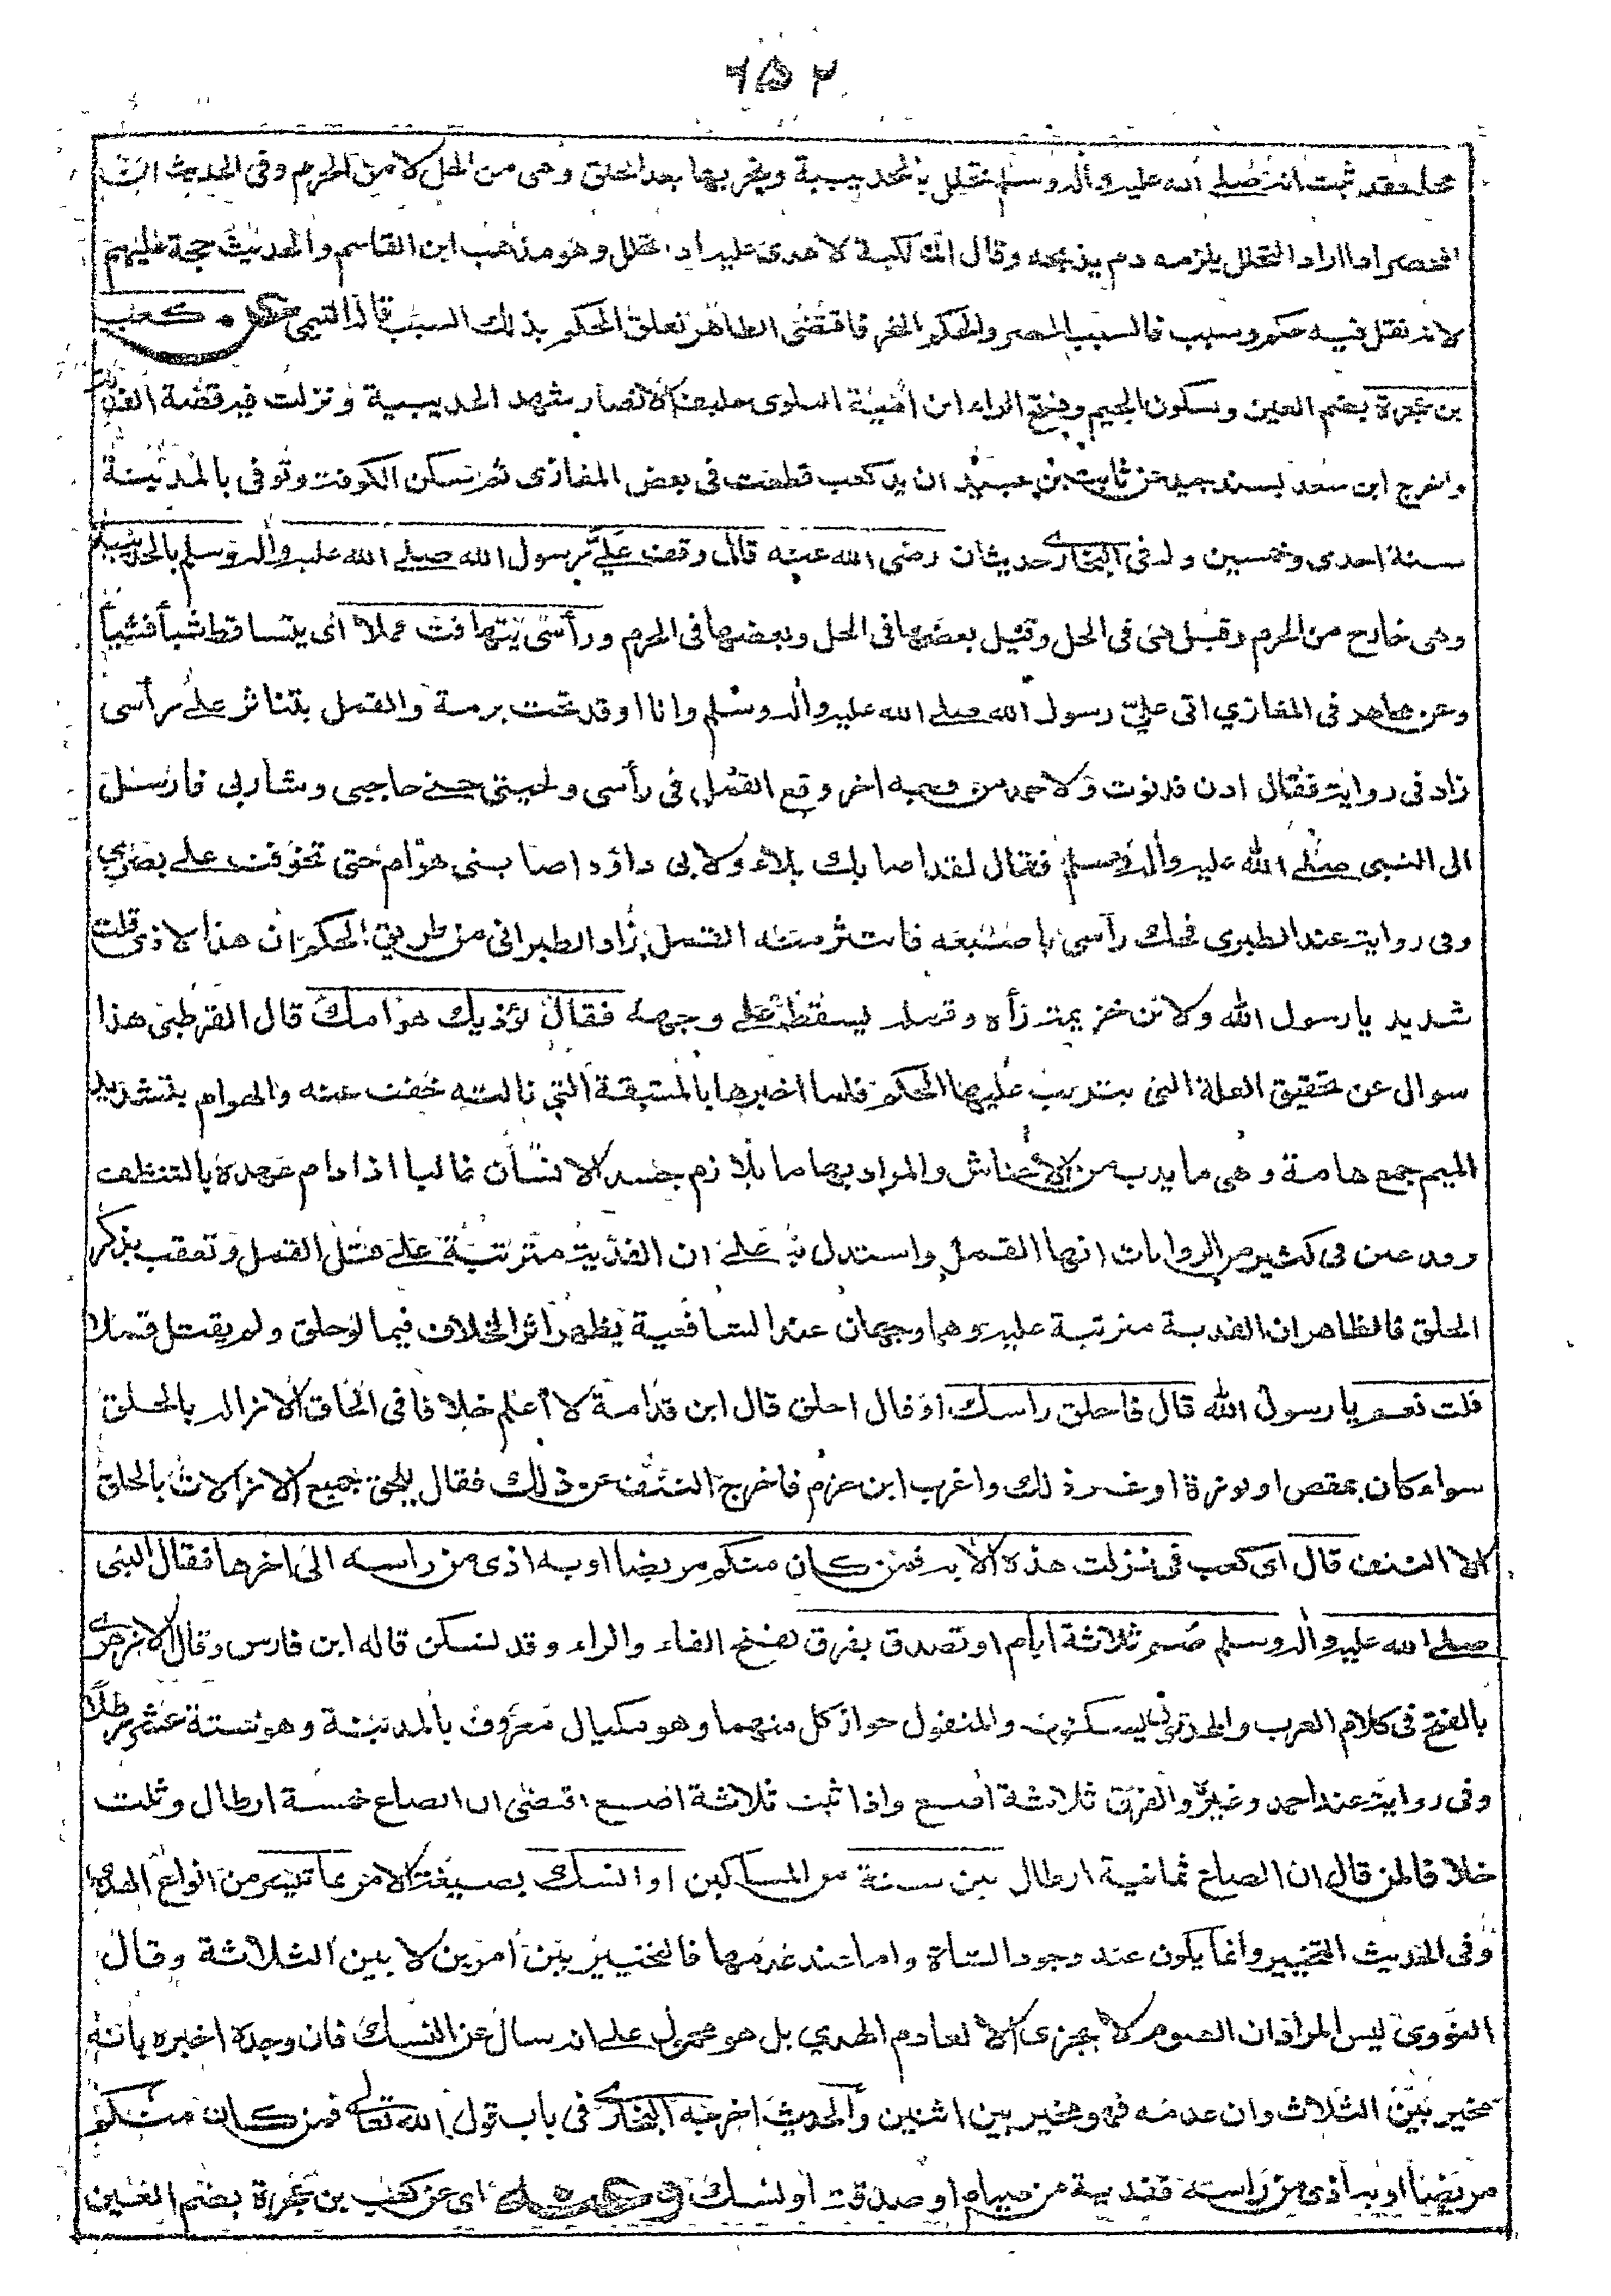 ٦٥٢
محله فقد ثبت انه صلے الله عليه واٰله وسلم تحلل بالحديبية ونحر بها بعد الحلق وهى من الحل لا من الحرم وفى الحديث ان
المحصر اذا اراد التحلل يلزمه دم يذبحه وقال المالكية لا هدى عليه اذا تحلل وهو مذهب ابن القاسم والحديث حجة عليهم
لانه نقل فيه حكم وسبب فالسبب الحصر والحكم النحر فاقتضى الظاهر تعلق الحكم بذلك السبب قاله التيمى عن كعب
بن عجرة بضم العين وسكون الجيم وفتح الراء ابن امية البلوى حليف الانصار شهد الحديبية ونزلت فيه قصة الفدية
واخرج ابن سعد بسند جيد عن ثابت بن عبيد ان يد كعب قطعت فى بعض المغازى ثم سكن الكوفة وتوفى بالمدينة
سنة احدى وخمسين وله فى البخارى حديثان رضى الله عنه قال وقف علىّ رسول الله صلے الله عليه واٰله وسلم بالحديبية
وهى خارج من الحرم وقيل هى فى الحل وقيل بعضها فى الحل وبعضها فى الحرم ورأسى يتهافت قملا اى يتساقط شيأ فشيأ
وعن مجاهد فى المغازي اتى علىّ رسول الله صلے الله عليه واٰله وسلم وانا اوقد تحت برمة والقمل يتناثر علے رأسى
زاد فى رواية فقال ادن فدنوت ولاحمد من وجه اخر وقع القمل فى رأسى ولحيتى حتے حاجبى وشاربى فارسل
الى النبى صلے الله عليه واٰله وسلم فقال لقد اصابك بلاء ولابى داؤد اصابنى هوام حتى تخوفت علے بصرى
وفى رواية عند الطبرى فحك رأسى باصبعه فانتثر منه القمل زاد الطبرانى من طريق الحكم ان هذا لاذى قلت
شديد يا رسول الله ولابن خزيمة رأه وقمله يسقط علے وجهه فقال يؤذيك هوامك قال القرطبى هذا
سوال عن تحقيق العلة التى يترتب عليها الحكم فلما اخبره بالمشقة التي نالته خففت عنه والهوام بتشديد
الميم جمع هامة وهى ما يدب من الاخناش والمراد بها ما يلازم جسد الانسان غالبا اذا دام عهده بالتنظف
وقد عين فى كثير من الروايات انها القمل واستدل به علے ان الفدية مترتبة علے قتل القمل وتعقب بذكر
الحلق فالظاهر ان الفدية مترتبة عليه وهما وجهان عند الشافعية يظهر اثر الخلاف فيما لو حلق ولم يقتل قملا
قلت نعم يا رسول الله قال فاحلق راسك او قال احلق قال ابن قدامة لا أعلم خلافا فى الحاق الازالة بالحلق
سواء كان بمقص او نورة او غير ذلك واغرب ابن حزم فاخرج النتف عن ذلك فقال يلحق جميع الازالات بالحلق
الا النتف قال اى كعب فى نزلت هذه الاٰية فمن كان منكم مريضا او به اذى من راسه الى اخرها فقال النبى
صلے الله عليه واٰله وسلم صم ثلاثة ايام او تصدق بفرق بفتح الفاء والراء وقد تسكن قاله ابن فارس وقال الازهرى
بالفتح فى كلام العرب والمحدثون يسكنونه والمنقول جواز كل منهما وهو مكيال معروف بالمدينة وهو ستة عشر رطلا
وفى رواية عند احمد وغيره والفرق ثلاثة اٰصع واذا ثبت ثلاثة اٰصع اقتضى ان الصاع خمسة ارطال وثلث
خلافا لمن قال ان الصاع ثمانية ارطال بين ستة من المساكين او انسك بصيغة الامر بما تيسر من انواع الهدى
وفى الحديث التخيير وانما يكون عند وجود الشاة واما عند عدمها فالتخيير بين أمرين لا بين الثلاثة وقال
النووى ليس المراد ان الصوم لا يجزى الا لعادم الهدي بل هو محمول على انه سال عن النسك فان وجده اخبره بانه
مخير بين الثلاث وان عدمه فهو مخير بين اثنين والحديث اخرجه البخارى فى باب قول الله تعالى فمن كان منكم
مريضا او به أذى من راسه ففدية من صيام او صدقة او نسك وعنه اى عن كعب بن عجرة بضم العين